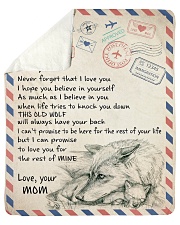 Never forget that I love you
I hope you believe in yourself
As much as I believe in you
when life tries to knock you down
THIS OLD WOLF
will always have your back
I can't promise to be here for the rest of your life
but I can promise
to love you for
the rest of MINE
Love, your
MOM